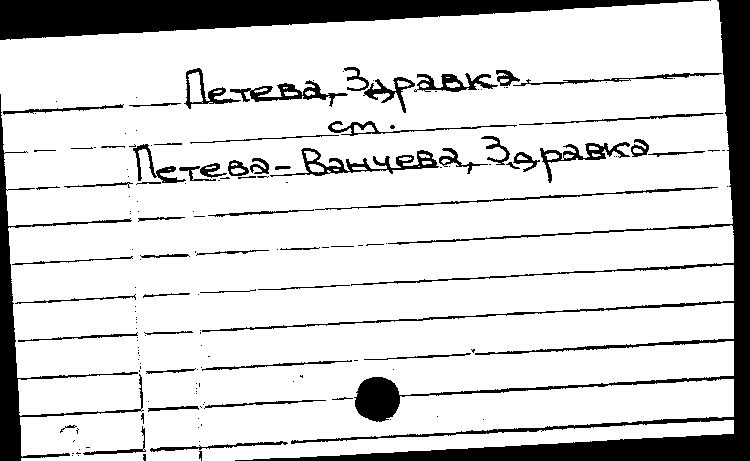 Петева, Здравка.
ст.
Петева-Ванчева, Здравка.